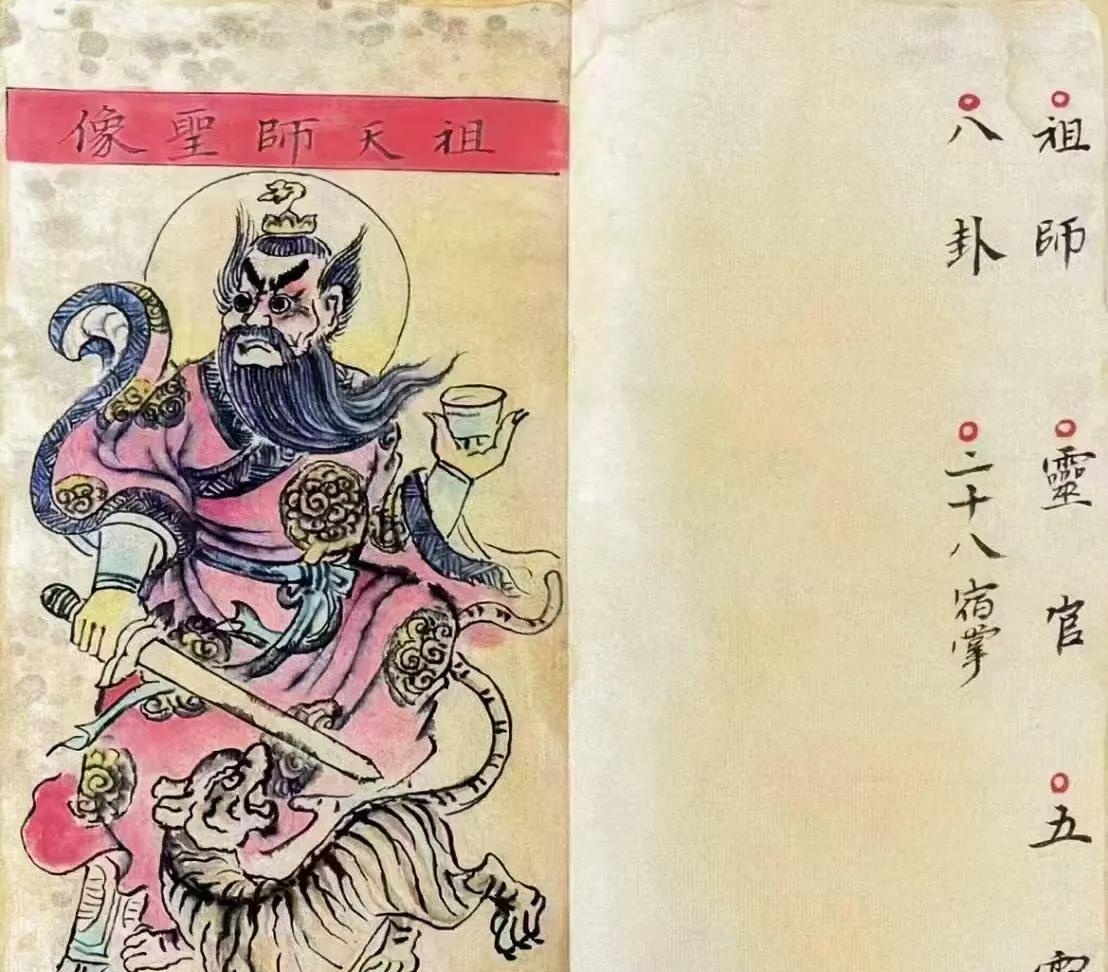 祖天師聖像
祖師 靈官 五
八卦 二十八宿掌